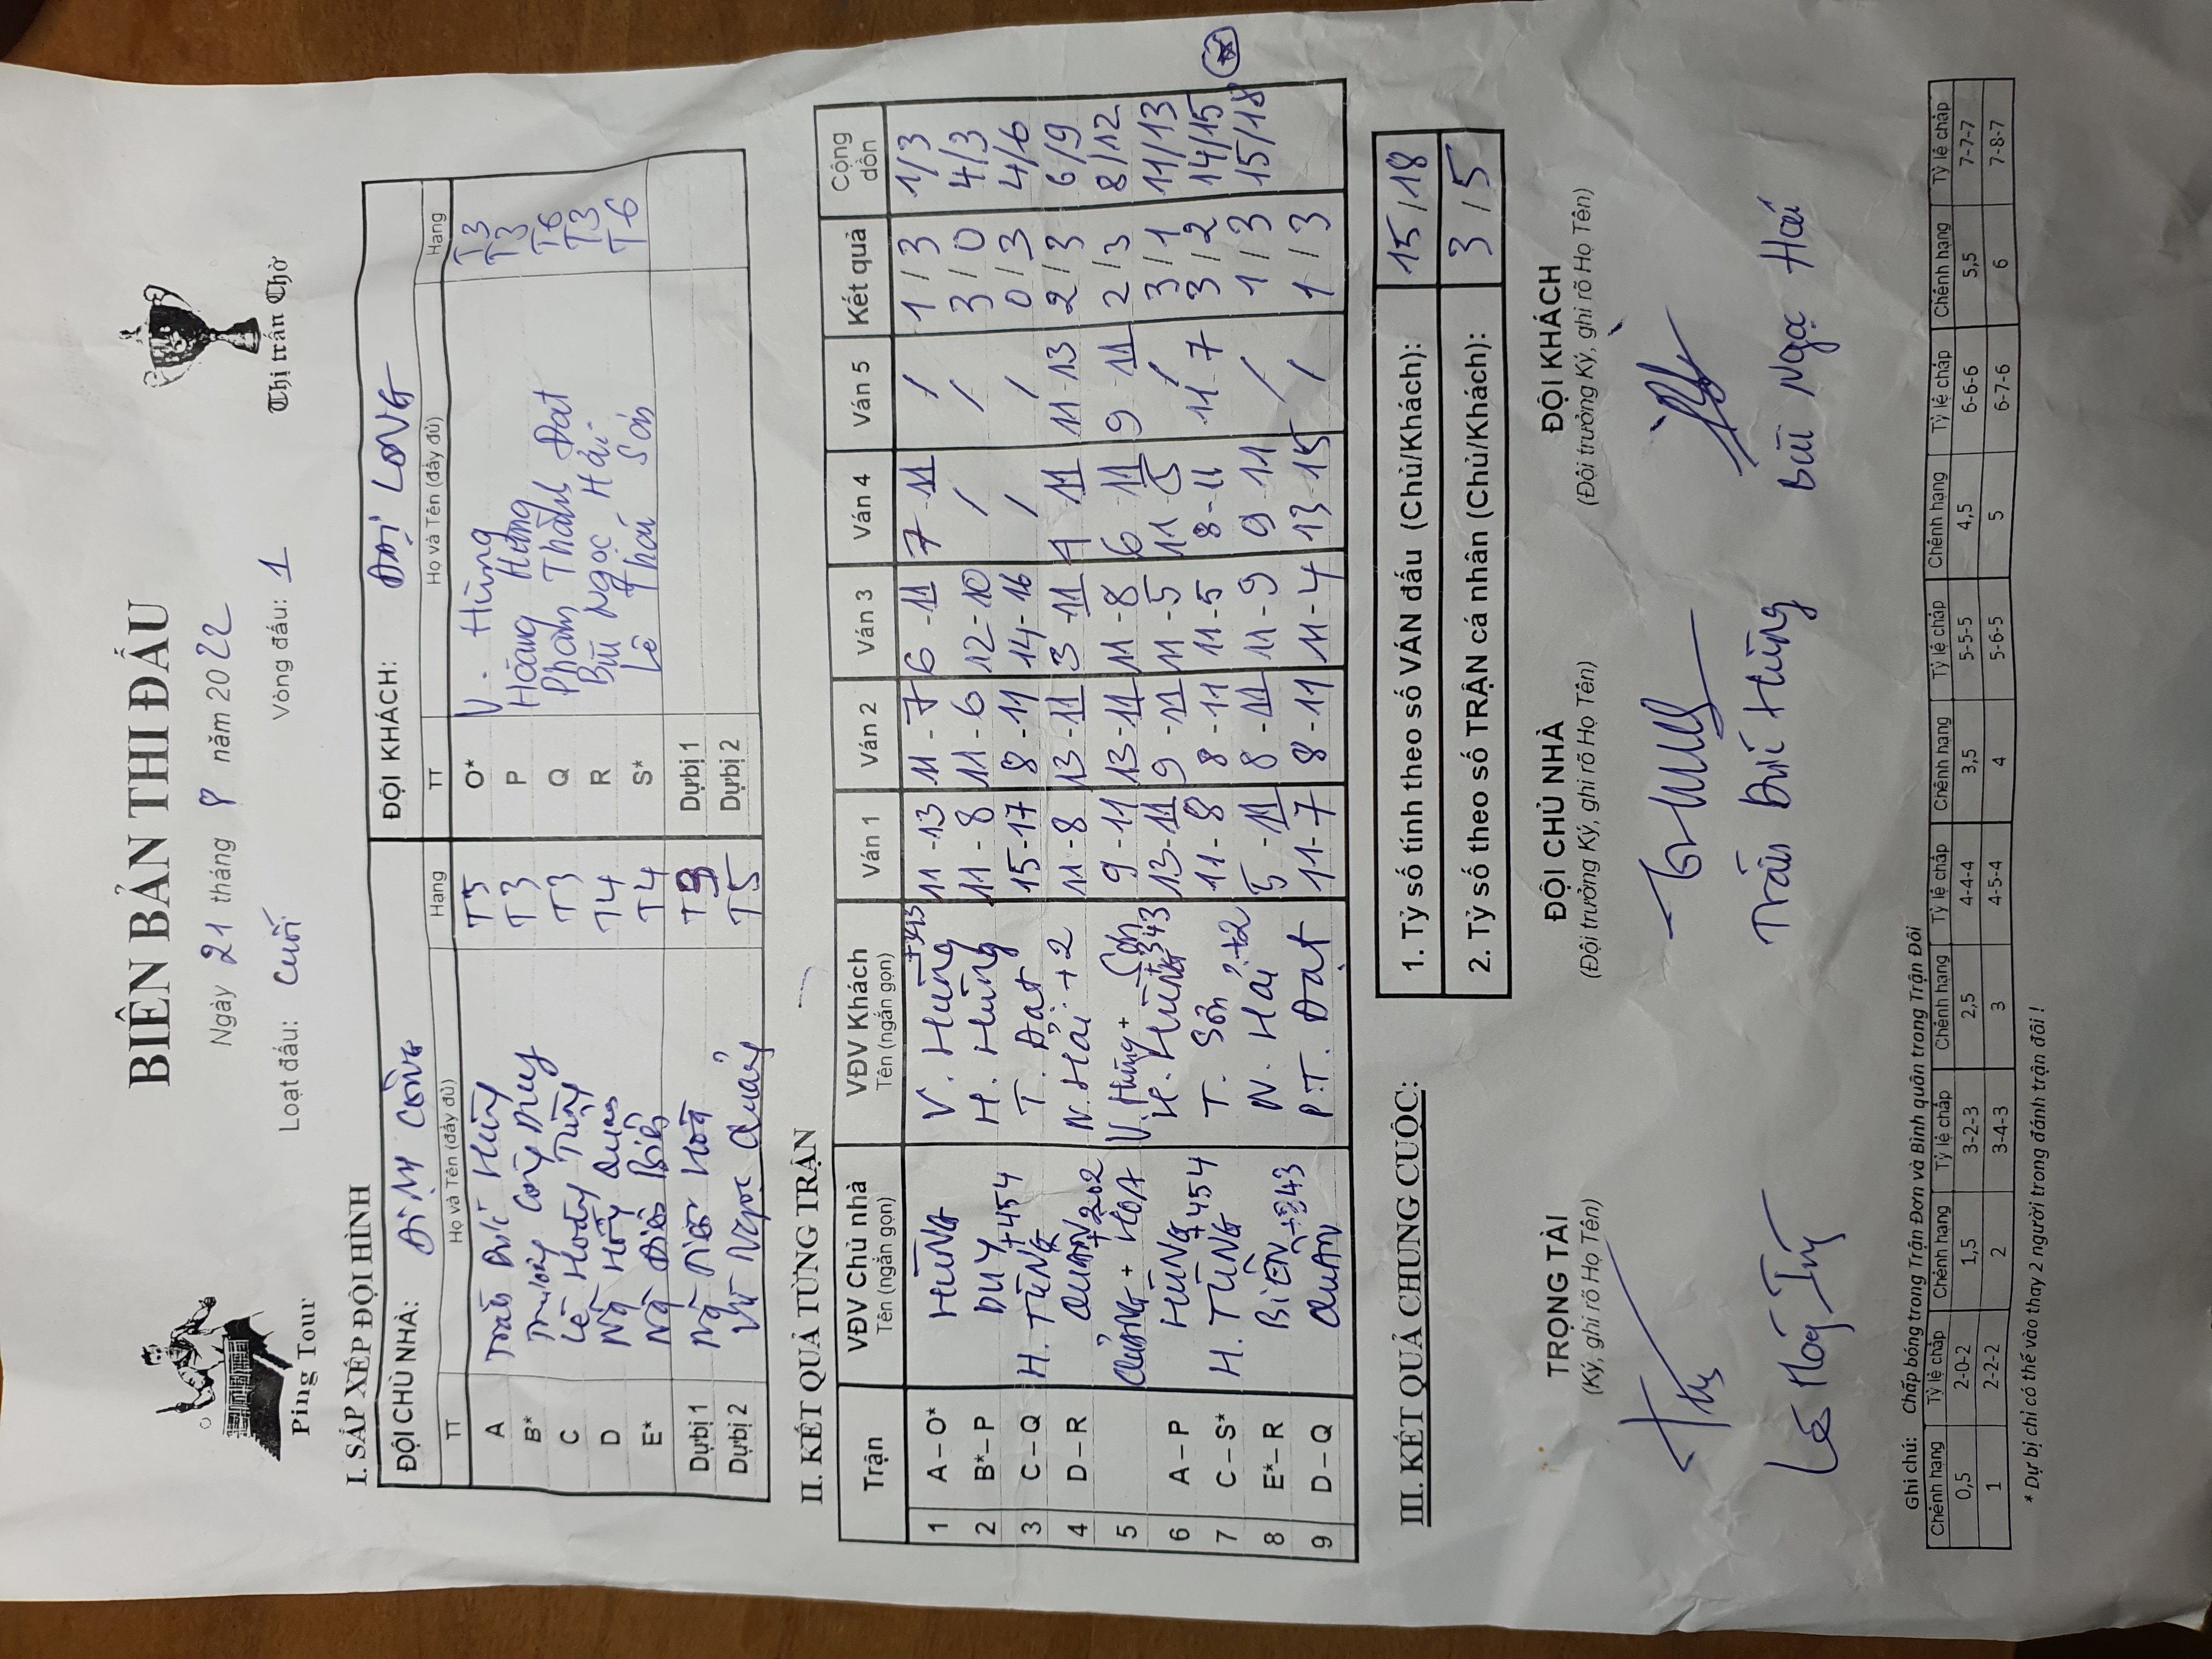 BIÊN BẢN THI ĐẤU
Ping Tour
Ngày 21 tháng 8 năm 2022
Loạt đấu: Cuối Vòng đấu: 1
Thị trấn Chờ
I. SẮP XẾP ĐỘI HÌNH
ĐỘI CHỦ NHÀ: ĐỘI KHÁCH: ĐẠI LONG
TT Họ và Tên (đầy đủ) Hạng TT Họ và Tên (đầy đủ) Hạng
A Trần Đức Hùng T5 O* V. Hùng T3
B* Trương Công Duy T3 P Hoàng Hưng T3
C Lê Hoàng Tùng T3 Q Phạm Thành Đạt T6
D Ng Hồng Quân T4 R Bùi Ngọc Hải T3
E* Ng Biên T4 S* Lê Thái Sơn T6
Dự bị 1 Hoà T3 Dự bị 1
Dự bị 2 Vũ Ngọc Quảng T5 Dự bị 2
II. KẾT QUẢ TỪNG TRẬN
Trận VĐV Chủ nhà VĐV Khách Ván 1 Ván 2 Ván 3 Ván 4 Ván 5 Kết quả Cộng dồn
Tên (ngắn gọn) Tên (ngắn gọn)
1 A – O* HÙNG V. HÙNG 11-13 11-7 6-11 7-11 / 1/3 1/3
2 B* – P DUY H. HÙNG 11-8 11-6 12-10 / 3/0 4/3
3 C – Q H. TÙNG +454 T. Đạt 15-17 8-11 14-16 / / 0/3 4/6
4 D – R QUÂN N. Hải +2 11-8 13-11 3-11 4-11 11-13 2/3 6/9
5 QUẢNG + HOÀ +202 V. Hùng + 9-11 13-11 11-8 6-11 9-11 2/3 8/12
6 A – P HÙNG H. HÙNG +343 13-11 9-11 11-5 11-5 / 3/1 11/13
7 C – S* H. TÙNG +454 T. SƠN 11-8 8-11 11-5 8-11 11-7 3/2 14/15
8 E* – R BIÊN +343 N. HẢI +2 5-11 8-11 11-9 9-11 / 1/3 15/18
9 D – Q QUÂN P.T. ĐẠT 11-7 8-11 11-4 13-15 / 1/3
III. KẾT QUẢ CHUNG CUỘC:
1. Tỷ số tính theo số VÁN đấu (Chủ/Khách): 15/18
2. Tỷ số theo số TRẬN cá nhân (Chủ/Khách): 3/5
TRỌNG TÀI ĐỘI CHỦ NHÀ ĐỘI KHÁCH
(Ký, ghi rõ Họ Tên) (Đội trưởng Ký, ghi rõ Họ Tên) (Đội trưởng Ký, ghi rõ Họ Tên)
Trần Đức Hùng Bùi Ngọc Hải
Ghi chú: Chấp bóng trong Trận Đơn và Bình quân trong Trận Đôi
Chênh hạng Tỷ lệ chấp Chênh hạng Tỷ lệ chấp Chênh hạng Tỷ lệ chấp Chênh hạng Tỷ lệ chấp Chênh hạng Tỷ lệ chấp Chênh hạng Tỷ lệ chấp Chênh hạng Tỷ lệ chấp
0,5 2-0-2 1,5 3-2-3 2,5 4-4-4 3,5 5-5-5 4,5 6-6-6 5,5 7-7-7
1 2-2-2 2 3-4-3 3 4-5-4 4 5-6-5 5 6-7-6 6 7-8-7
* Dự bị chỉ có thể vào thay 2 người trong đánh trận đôi !